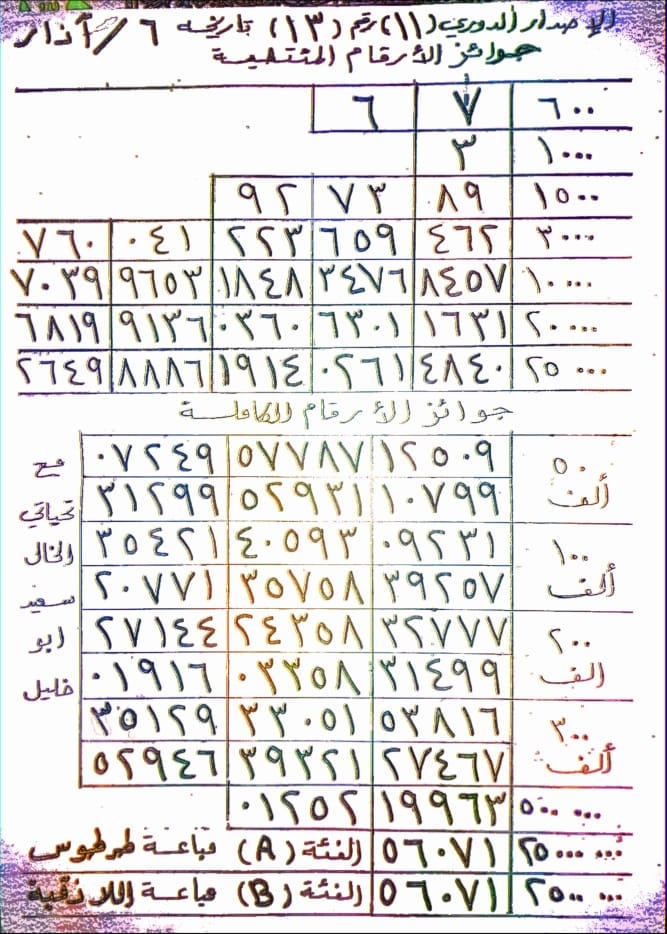 الإصدار الدوري (١١) رقم (١٣) تاريخه ٦/آذار
جوائز الأرقام المنتهية
٦٠٠ ٧ ٦
١٠٠٠ ٣
١٥٠٠ ٨٩ ٧٣ ٩٢
٣٠٠٠ ٤٦٢ ٦٥٩ ٢٢٣ ٠٤١ ٧٦٠
١٠٠٠٠ ٨٤٥٧ ٣٤٧٦ ١٨٤٨ ٩٦٥٣ ٧٠٣٩
٢٠٠٠٠ ١٦٣١ ٦٣٠١ ٠٣٦٠ ٩١٣٦ ٦٨١٩
٢٥٠٠٠ ٤٨٤٠ ٠٢٦١ ١٩١٤ ٨٨٨٦ ٢٦٤٩
جوائز الأرقام الكاملة
٥٠ ١٢٥٠٩ ٥٧٧٨٧ ٠٧٢٤٩ مع
ألف ١٠٧٩٩ ٥٢٩٣١ ٣١٢٩٩ تحياتي
١٠٠ ٠٩٢٣١ ٤٠٥٩٣ ٣٥٤٢١ الخال
ألف ٣٩٢٥٧ ٣٥٧٥٨ ٢٠٧٧١ سعيد
٢٠٠ ٣٢٧٧٧ ٢٤٣٥٨ ٢٧١٤٤ ابو
الف ٣١٤٩٩ ٠٣٣٥٨ ٠١٩١٦ خليل
٣٠٠ ٥٣٨١٦ ٣٣٠٥١ ٣٥١٢٩
ألف ٢٧٤٦٧ ٣٩٣٢١ ٥٢٩٤٦
٥٠٠٠٠٠ ١٩٩٦٣ ٠١٢٥٢
٢٥٠٠٠٠٠٠ ٥٦٠٧١ الفئة (A) مباعة طرطوس
٢٥٠٠٠٠٠٠ ٥٦٠٧١ الفئة (B) مباعة اللاذقية